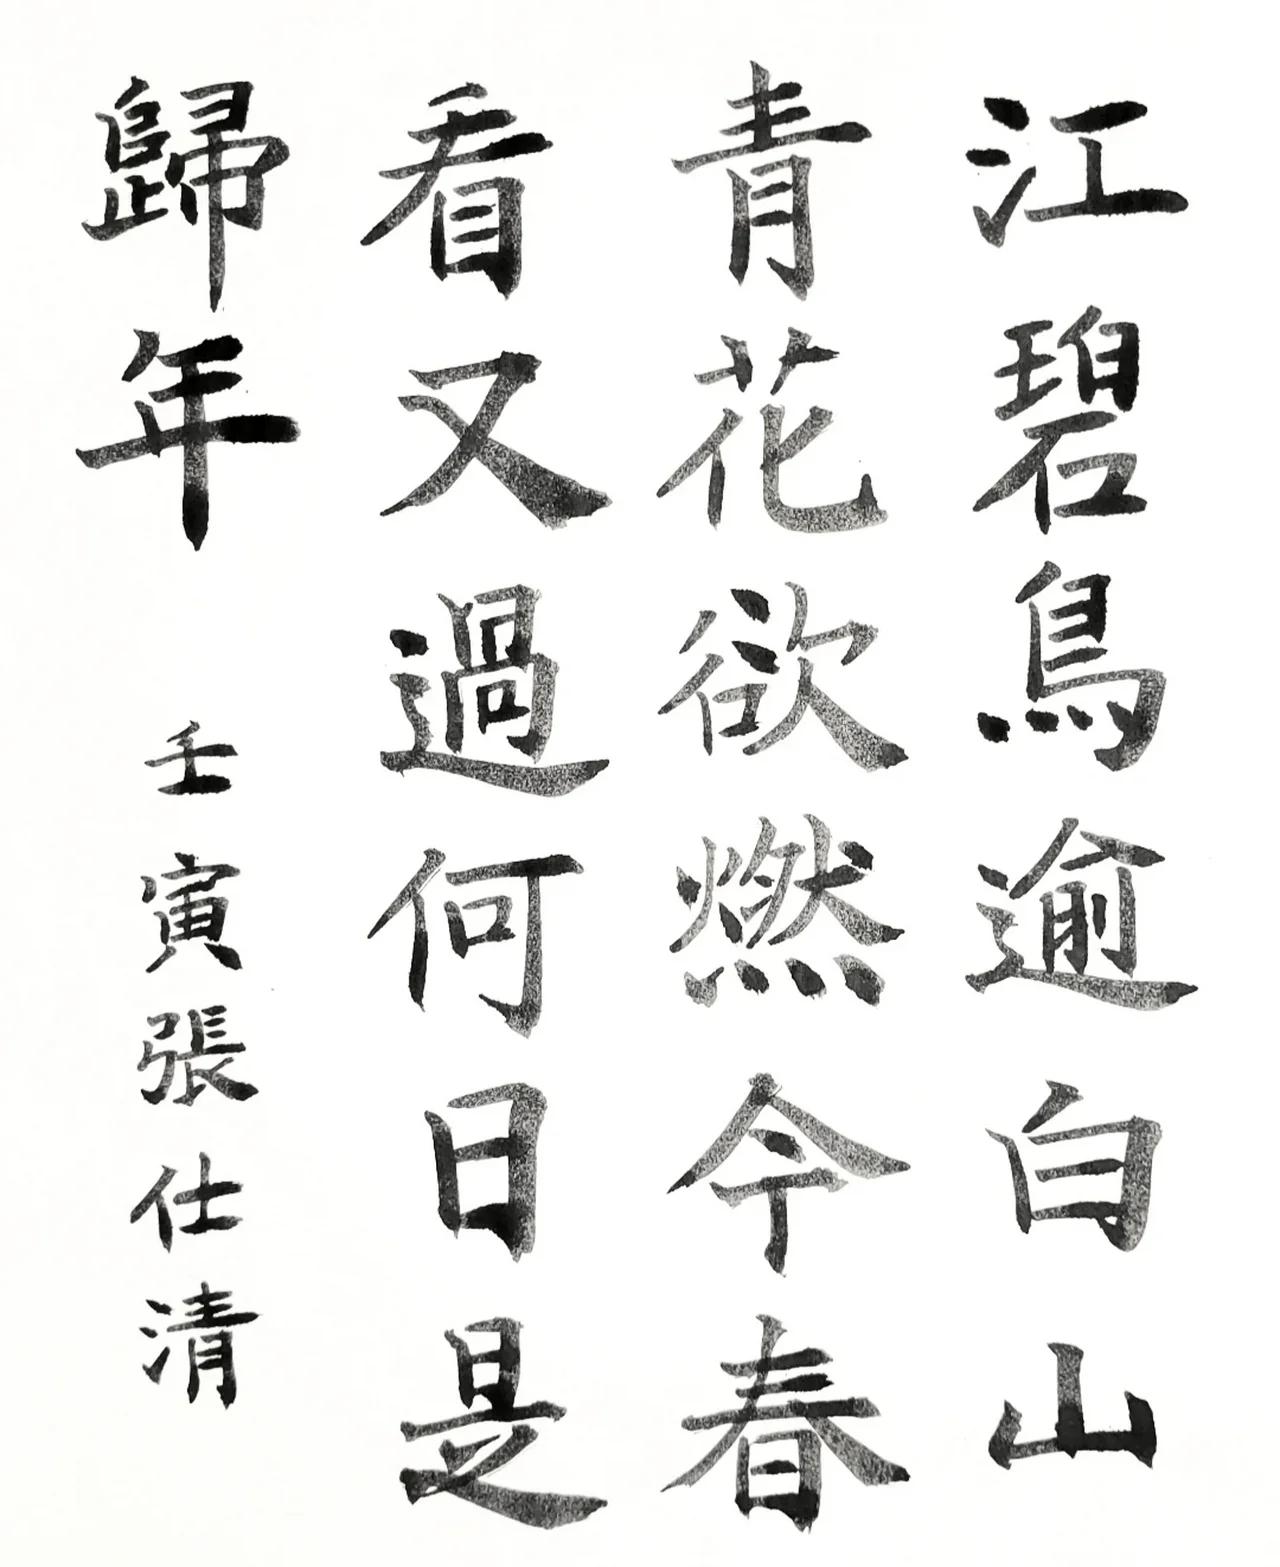 江碧鳥逾白山
青花欲燃今春
看又過何日是
歸年
壬寅張仕清